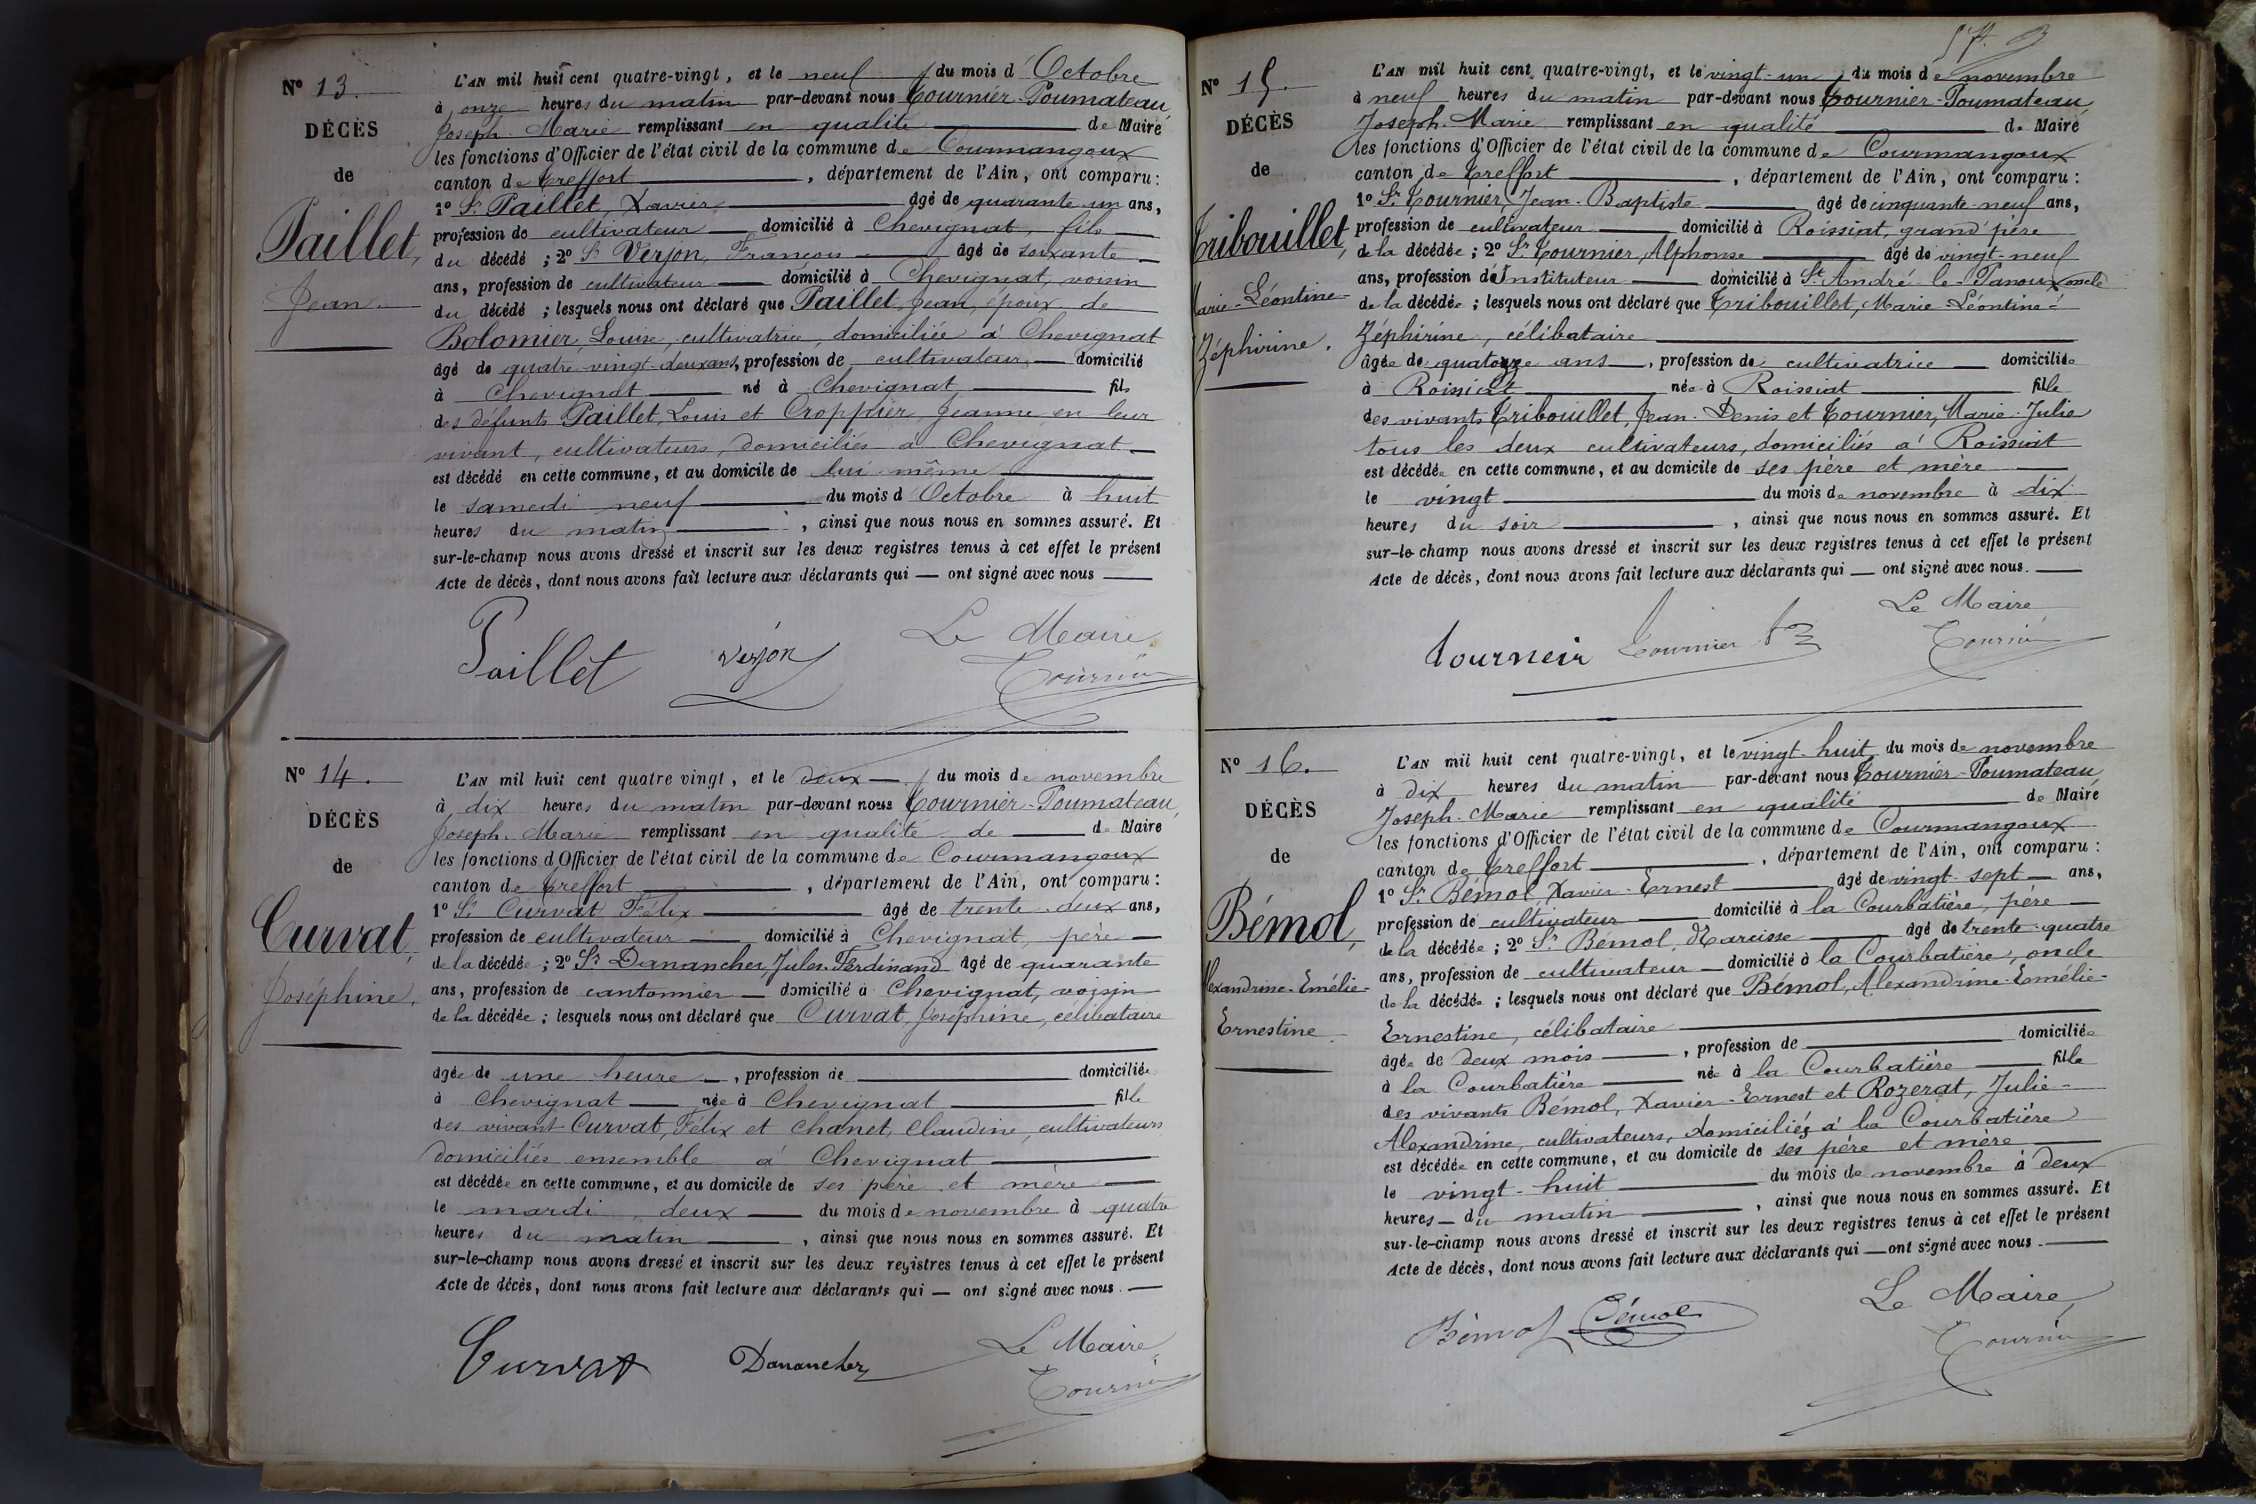 Nº 13.
DÉCÈS
de
Paillet,
Jean.
L'AN mil huit cent quatre-vingt, et le neuf du mois d'Octobre
à onze heures du matin par-devant nous Tournier-Poumateau,
Joseph-Marie remplissant en qualité de Maire
les fonctions d'Officier de l'état civil de la commune de Courmangoux
canton de Treffort, département de l'Ain, ont comparu :
1º Sr. Paillet, Xavier âgé de quarante-un ans,
profession de cultivateur domicilié à Chevignat, fils
du décédé ; 2º Sr. Verjon, François âgé de soixante
ans, profession de cultivateur domicilié à Chevignat, voisin
du décédé ; lesquels nous ont déclaré que Paillet, Jean, époux de
Bolomier, Louise, cultivatrice, domiciliée à Chevignat
âgé de quatre-vingt-deux ans, profession de cultivateur domicilié
à Chevignat né à Chevignat fils
des défunts Paillet, Louis et Croppier Jeanne en leur
vivant, cultivateurs, domiciliés à Chevignat
est décédé en cette commune, et au domicile de lui-même
le samedi neuf du mois d'Octobre à huit
heures du matin, ainsi que nous nous en sommes assuré. Et
sur-le-champ nous avons dressé et inscrit sur les deux registres tenus à cet effet le présent
Acte de décès, dont nous avons fait lecture aux déclarants qui — ont signé avec nous
Le Maire
Paillet Verjon Tournier
Nº 14.
DÉCÈS
de
Curvat,
Joséphine.
L'AN mil huit cent quatre vingt, et le deux du mois de novembre
à dix heures du matin par-devant nous Tournier-Poumateau,
Joseph-Marie remplissant en qualité de de Maire
les fonctions d'Officier de l'état civil de la commune de Courmangoux
canton de Treffort, département de l'Ain, ont comparu :
1º Sr. Curvat Félix âgé de trente-deux ans,
profession de cultivateur domicilié à Chevignat, père
de la décédée ; 2º Sr. Danancher, Jules-Ferdinand âgé de quarante
ans, profession de cantonnier domicilié à Chevignat, voisin
de la décédée ; lesquels nous ont déclaré que Curvat, Joséphine, célibataire
âgée de une heure, profession de domiciliée
à Chevignat née à Chevignat fille
des vivant Curvat, Félix et Chanet, Claudine, cultivateurs
domiciliés ensemble à Chevignat
est décédée en cette commune, et au domicile de ses père et mère
le mardi deux du mois de novembre à quatre
heures du matin, ainsi que nous nous en sommes assuré. Et
sur-le-champ nous avons dressé et inscrit sur les deux registres tenus à cet effet le présent
Acte de décès, dont nous avons fait lecture aux déclarants qui — ont signé avec nous.
Le Maire
Curvat Danancher Tournier
Nº 15.
DÉCÈS
de
Tribouillet,
Marie-Léontine
Zéphirine.
L'AN mil huit cent quatre-vingt, et le vingt-un du mois de novembre
à neuf heures du matin par-devant nous Tournier-Poumateau,
Joseph-Marie remplissant en qualité de Maire
les fonctions d'Officier de l'état civil de la commune de Courmangoux
canton de Treffort, département de l'Ain, ont comparu :
1º Sr. Tournier, Jean-Baptiste âgé de cinquante-neuf ans,
profession de cultivateur domicilié à Roissiat, grand'père
de la décédée ; 2º Sr. Tournier, Alphonse âgé de vingt-neuf
ans, profession de Instituteur domicilié à St. André-le-Panoux oncle
de la décédée ; lesquels nous ont déclaré que Tribouillet, Marie-Léontine-
Zéphirine, célibataire
âgée de quatorze ans, profession de cultivatrice domiciliée
à Roissiat née à Roissiat fille
des vivants Tribouillet, Jean-Denis et Tournier, Marie-Julie
tous les deux cultivateurs, domiciliés à Roissiat
est décédée en cette commune, et au domicile de ses père et mère
le vingt du mois de novembre à dix
heures du soir, ainsi que nous nous en sommes assuré. Et
sur-le-champ nous avons dressé et inscrit sur les deux registres tenus à cet effet le présent
Acte de décès, dont nous avons fait lecture aux déclarants qui — ont signé avec nous.
Le Maire
Tourneir Tournier Tournier
Nº 16.
DÉCÈS
de
Bémol,
Alexandrine-Emélie-
Ernestine.
L'AN mil huit cent quatre-vingt, et le vingt-huit du mois de novembre
à dix heures du matin par-devant nous Tournier-Poumateau,
Joseph-Marie remplissant en qualité de Maire
les fonctions d'Officier de l'état civil de la commune de Courmangoux
canton de Treffort, département de l'Ain, ont comparu :
1º Sr. Bémol, Xavier-Ernest âgé de vingt-sept ans,
profession de cultivateur domicilié à la Courbatière, père
de la décédée ; 2º Sr. Bémol, Narcisse âgé de trente-quatre
ans, profession de cultivateur domicilié à la Courbatière, oncle
de la décédée ; lesquels nous ont déclaré que Bémol, Alexandrine-Emélie-
Ernestine, célibataire
âgée de deux mois, profession de domiciliée
à la Courbatière née à la Courbatière fille
des vivants Bémol, Xavier-Ernest et Rozerat, Julie-
Alexandrine, cultivateurs, domiciliés à la Courbatière
est décédée en cette commune, et au domicile de ses père et mère
le vingt-huit du mois de novembre à deux
heures du matin, ainsi que nous nous en sommes assuré. Et
sur-le-champ nous avons dressé et inscrit sur les deux registres tenus à cet effet le présent
Acte de décès, dont nous avons fait lecture aux déclarants qui — ont signé avec nous.
Le Maire
Bémol Bémol Tournier